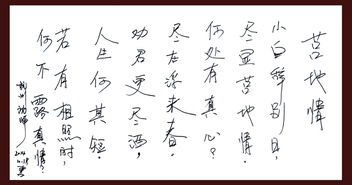 莒地情
小白辞别日，
尽显莒地情。
何处有真心？
尽在浮来春。
劝君更尽酒，
人生何其短。
若有相照时，
何不露真情？